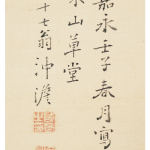 嘉永壬子春月寫
水山草堂
十七翁沖澹